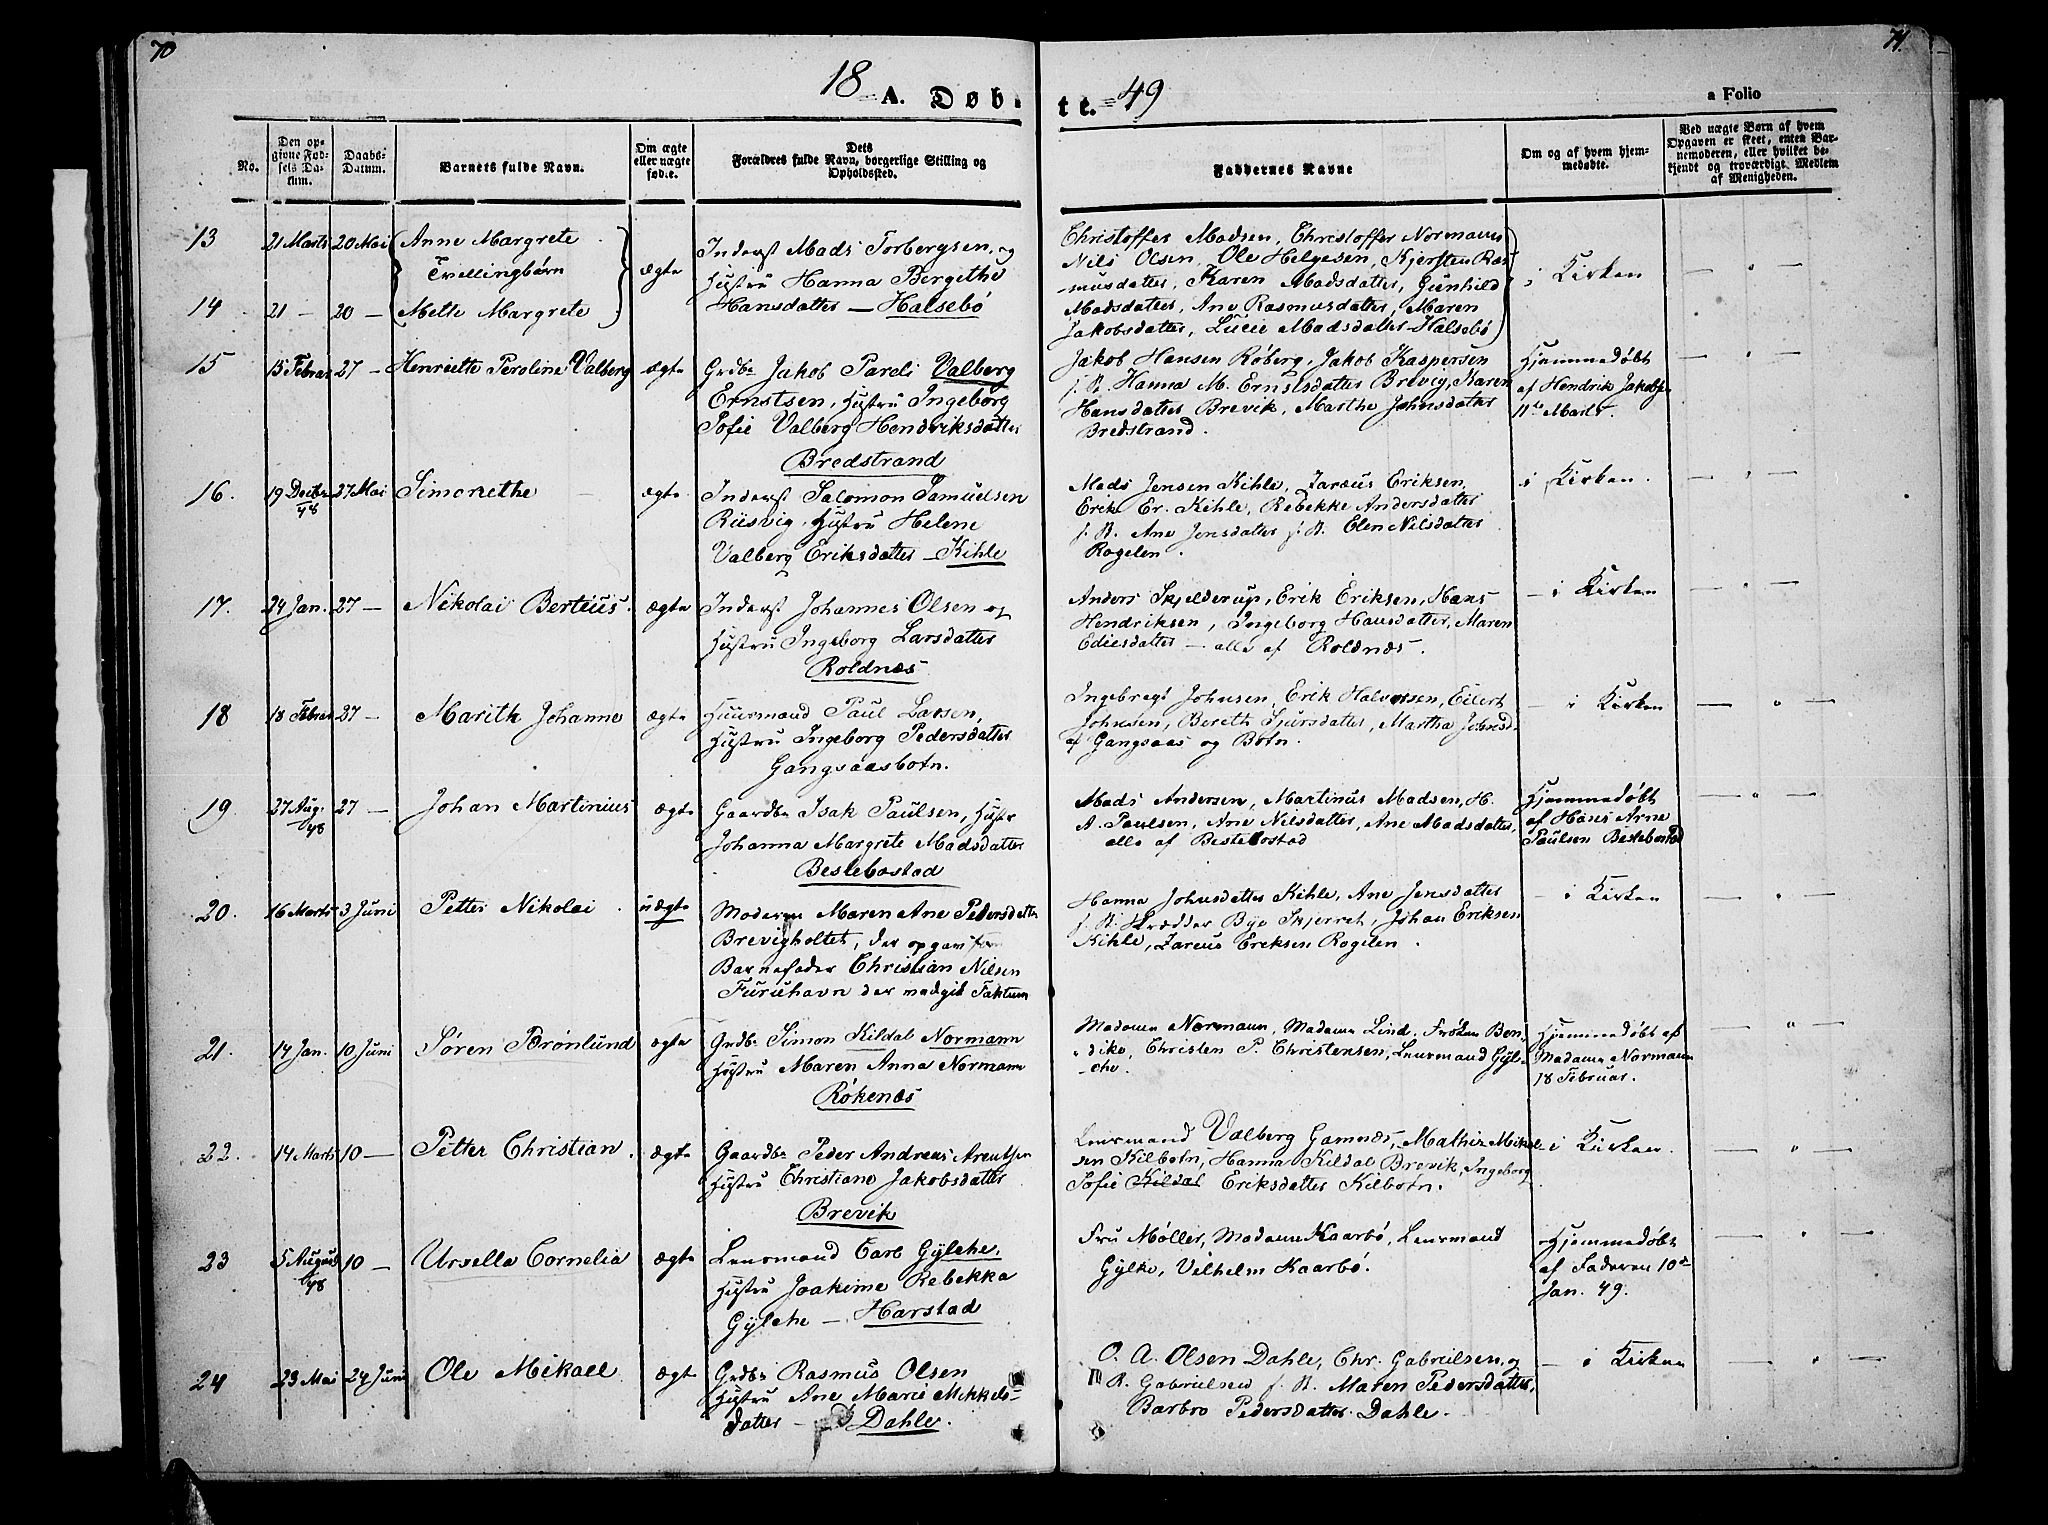 70
71.
18 A. Døb-
te. 49
a Folio
No.
Den op-
givne Fød-
sels Da-
tum.
Daabs-
Datum.
Barnets fulde Navn.
Om ægte
eller uægte
født.
Dets
Forældres fulde Navn, borgerlige Stilling og
Opholdssted.
Faddernes Navne
Om og af hvem hjem-
medøbte.
Ved uægte Børn af hvem
Opgaven er skeet, enten Bar-
nemoderen, eller hvilket be-
kjendt og troværdigt Medlem
af Menigheden.
13 21 Marts 20 Mai Anne Margrete
Tvillingbørn
14 21 — 20 — Mette Margrete
ægte
Inderst Mads Torbergsen og
Hustru Hanna Bergithe
Hansdatter — Halsebö
Christoffer Madsen, Christoffer Normann
Nils Olsen, Ole Helgesen, Kjersten Ras-
-musdatter, Karen Madsdatter, Gunhild
Madsdatter, Ane Rasmusdatter, Maren
Jakobsdatter, Lucie Madsdatter Halsebö
i Kirken
15 15 Febrar 27 — Henriette Peroline Valberg ægte
Grdbr Jakob Pareli Valberg
Ernstsen, Hustru Ingeborg
Sofie Valberg Hendriksdatter
Bredstrand
Jakob Hansen Röberg, Jakob Kaspersen
f. St. Hanna M. Ernstsdatter Brevig, Karen
Hansdatter Brevik, Marthe Johnsdatter
Bredstrand.
Hjemmedöbt
af Hendrik Jakobs
11te Marts.
16. 19 Decbr 48 27 Mai Simonethe ægte
Inderst Salomon Samuelsen
Riisvig, Hustru Helene
Valberg Eriksdatter — Kihle
Mads Jensen Kihle, Zaræus Eriksen,
Erik Er. Kihle, Rebekke Andersdatter
f. St. Ane Jensdatter f. St. Elen Nilsdatter
Rogelen.
i Kirken.
17. 24 Jan. 27 — Nikolai Berteus. ægte
Inderst Johannes Olsen og
Hustru Ingeborg Larsdatter
Roldnæs
Anders Skjelderup, Erik Eriksen, Hans
Hendriksen, Ingeborg Hansdatter, Maren
Ediesdatter — alle af Roldnæs.
— i Kirken
18 18 Febrar 27 — Marith Johanne ægte
Huusmand Paul Larsen,
Hustru Ingeborg Pedersdatter
Gangsaasbotn.
Ingebregt Johnsen, Erik Halvorsen, Eilert
Johnsen, Bereth Sjursdatter, Martha Johnsd.
af Gangsaas og Botn.
— i Kirken
19. 27 Aug. 48 27 — Johan Martinius ægte
Gaardbr Isak Paulsen, Hustr
Johanna Margrete Madsdatter
Beslebostad
Mads Andersen, Martinus Madsen, H.
A. Paulsen, Ane Nilsdatter, Ane Madsdatter,
alle af Beslebostad
Hjemmedöbt
af Hans Arne
Paulsen Beslebostad
20. 16 Marts 3 Juni Petter Nikolai uægte
Moderen Maren Ane Pedersdatter
Brevigholtet, der opgav som
Barnefader Christian Nilsen
Furuhavn der medgik Faktum
Hanna Johnsdatter Kihle, Ane Jensdatter
f. St. Skrædder Bye Skjerret, Johan Eriksen
Kihle, Zareus Eriksen Rogelen.
— i Kirken
21. 14 Jan. 10 Juni Sören Parönlund ægte
Grdbr Simon Kildal Normann
Hustru Maren Anna Normann
Rökenæs
Madame Normann, Madame Lind, Fröken Ben-
-dike, Christen P. Christensen, Lensmand Gyl-
-che.
Hjemmedöbt af
Madame Normann
18 Februar.
22. 14 Marts 10 — Petter Christian. ægte
Gaardbr Peder Andreas Arentsen
Hustru Christiane Jakobsdatter
Brevik
Lensmand Valberg Gamnæs, Mathis Mikel-
sen Kilbotn, Hanna Kildal Brevik, Ingeborg
Sofie Kildal Eriksdatter Kilbotn.
i Kirken.
23 5 August 48 10 — Ursella Cornelia ægte
Lensmand Carl Gylche,
Hustru Joakime Rebekka
Gylche — Harstad
Fru Møller, Madame Kaarbö, Lensmand
Gylke, Vilhelm Kaarbö.
Hjemmedöbt
af Faderen 10de
Jan. 49.
24 23 Mai 24 Juni Ole Mikael ægt
Grdbr Rasmus Olsen
Hustru Ane Marie Mikkels-
datter — Dahle.
O. A. Olsen Dahle, Chr. Gabrielsen, og
R. Gabrielsen f. St. Maren Pedersdatter,
Barbro Pedersdatter Dahle.
— i Kirken